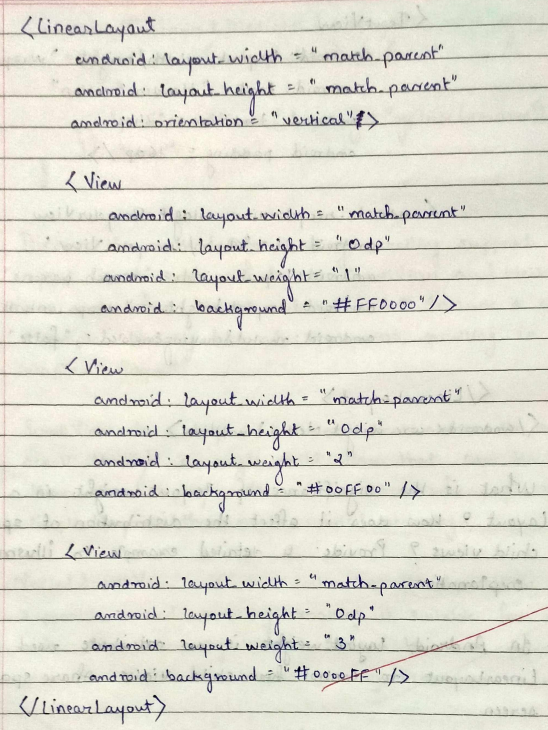 <LinearLayout
android: layout_width = "match_parent"
android: layout_height = "match_parent"
android: orientation = "vertical">
<View
android: layout_width = "match_parent"
android: layout_height = "0dp"
android: layout_weight = "1"
android: background = "#FF0000"/>
<View
android: layout_width = "match_parent"
android: layout_height = "0dp"
android: layout_weight = "2"
android: background = "#00FF00" />
<View
android: layout_width = "match_parent"
android: layout_height = "0dp"
android: layout_weight = "3"
android: background = "#0000FF" />
</LinearLayout>